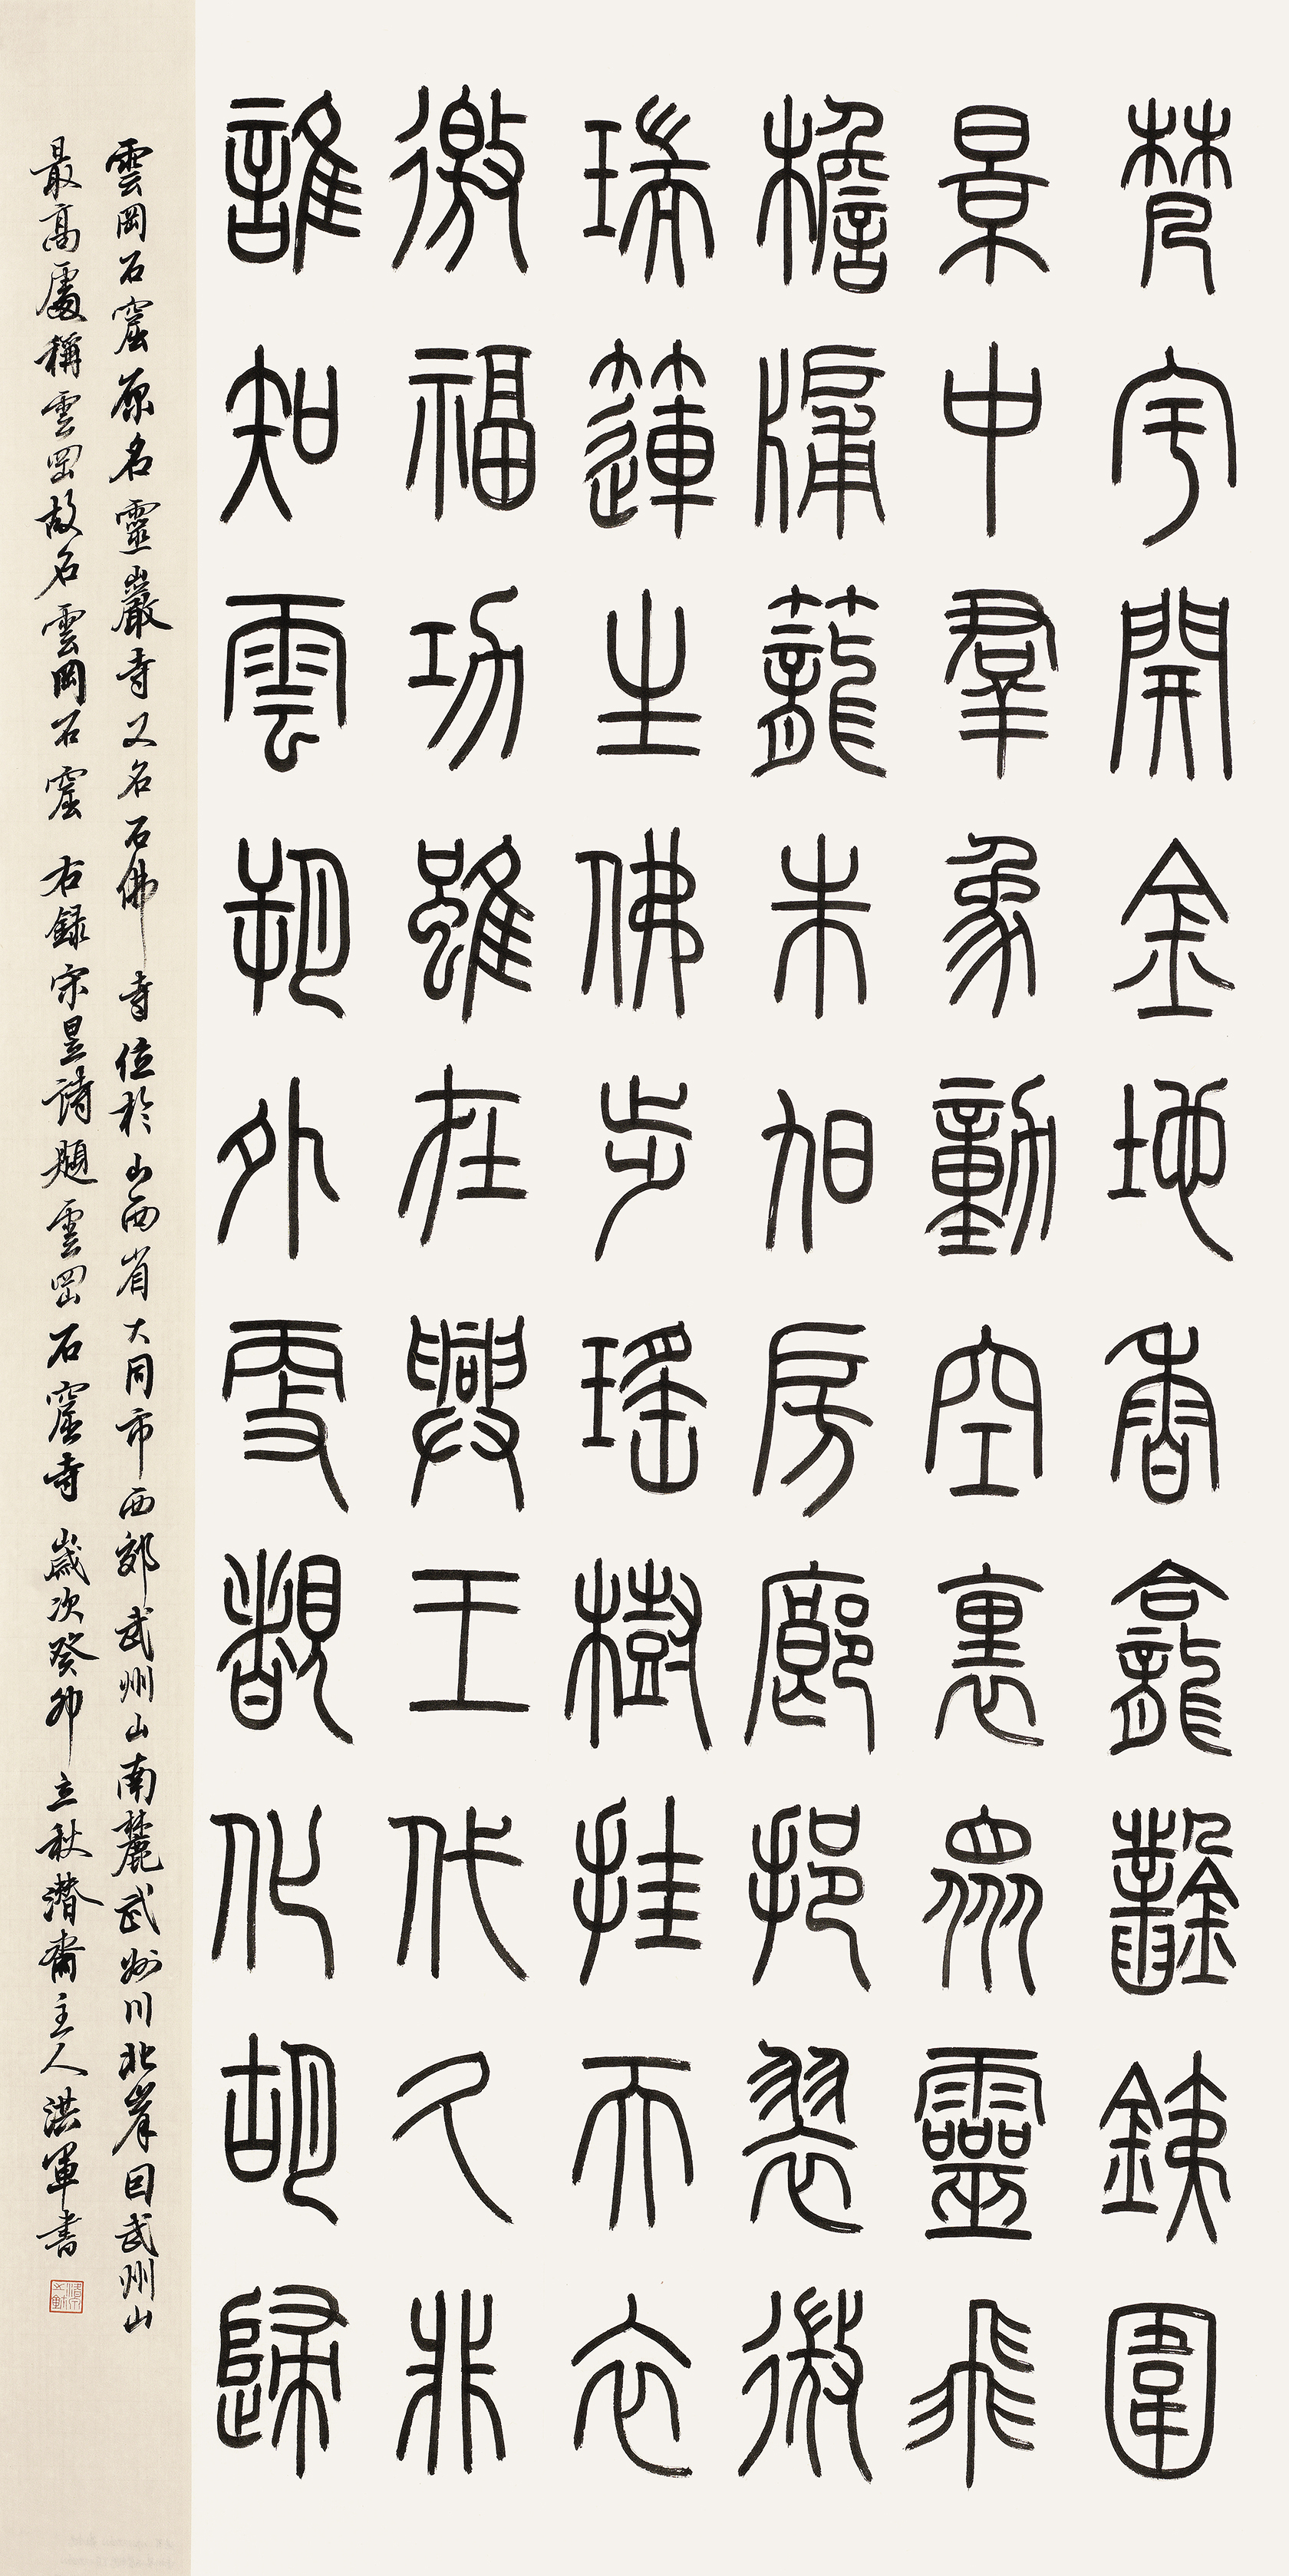 梵宇開金地香龕鑿銕圍
景中羣象動空裏眾靈飛
檐牖籠朱旭房廊挹翠微
瑞蓮生佛步瑤樹挂天衣
徼福功雖在興王代久非
誰知雲朔外更覩化胡歸
雲岡石窟原名靈巖寺又名石佛寺位於山西省大同市西郊武州山南麓武州川北岸因武州山
最高處稱雲岡故名雲岡石窟 右録宋昱詩題雲岡石窟寺 歲次癸卯立秋潛齋主人洪軍書